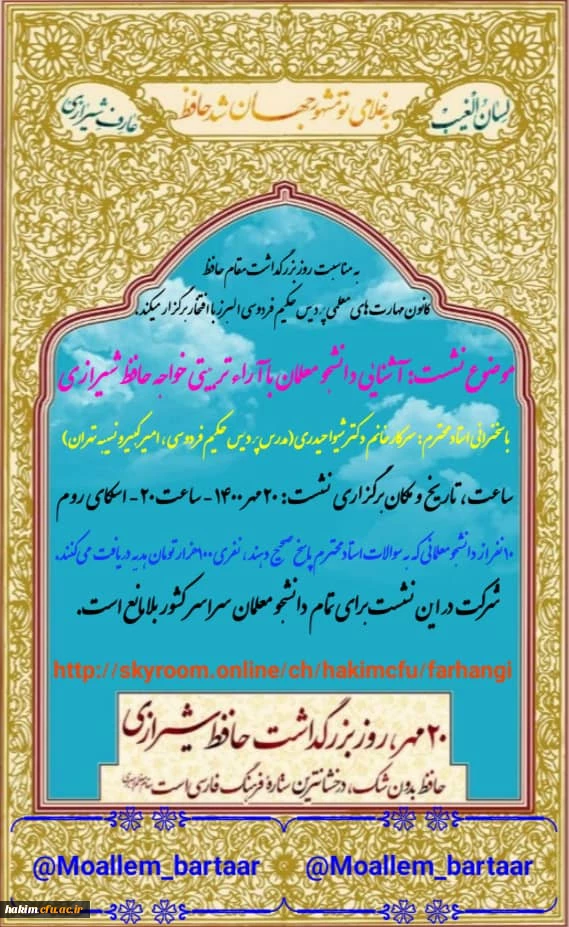 لسان الغیب
به غلامی تو مشهور جهان شد حافظ
عارف شیرازی
به مناسبت روز بزرگداشت مقام حافظ
کانون مهارت های معلمی پردیس حکیم فردوسی البرز با افتخار برگزار میکند.
موضوع نشست: آشنایی دانشجو معلمان با آراء تربیتی خواجه حافظ شیرازی
با سخنرانی استاد محترم: سرکار خانم دکتر شیوا حیدری (مدرس پردیس حکیم فردوسی، امیرکبیر و نسیبه تهران)
ساعت، تاریخ و مکان برگزاری نشست: ۲۰ مهر ۱۴۰۰ - ساعت ۲۰ - اسکای روم
۱۰ نفر از دانشجو معلمانی که به سوالات استاد محترم پاسخ صحیح دهند، نفری ۱۰۰ هزار تومان هدیه دریافت می کنند.
شرکت در این نشست برای تمام دانشجو معلمان سراسر کشور بلامانع است.
http://skyroom.online/ch/hakimcfu/farhangi
۲۰ مهر، روز بزرگداشت حافظ شیرازی
حافظ بدون شک، درخشانترین ستارهٔ فرهنگ فارسی است
@Moallem_bartaar @Moallem_bartaar
hakim.cfu.ac.ir